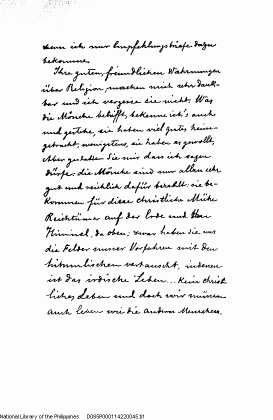 wenn ich nur Empfehlungsbriefe dazu
bekomme.
Ihre guten, freundlichen Mahnungen
über Religion machen mich sehr dank-
bar und ich vergesse sie nicht. Was
die Mönche betrifft, bekenne ich's auch
und gestehe, sie haben viel gutes
gebracht, wenigstens, sie haben es gewollt.
Aber gestatten Sie mir dass ich sagen
dürfe die Mönche sind vor allem sehr
gut und reichlich dafür bezahlt: sie be-
kommen für diese christliche Mühe
Reichtümer auf der Erde und
Himmel, da oben; zwar haben sie uns
die Felder unserer Vorfahren mit den
himmlischen vertauscht, indessen
ist das irdische Leben... kein christ
liches Leben und doch wir müssen
auch leben wie die andern Menschen.
National Library of the Philippines